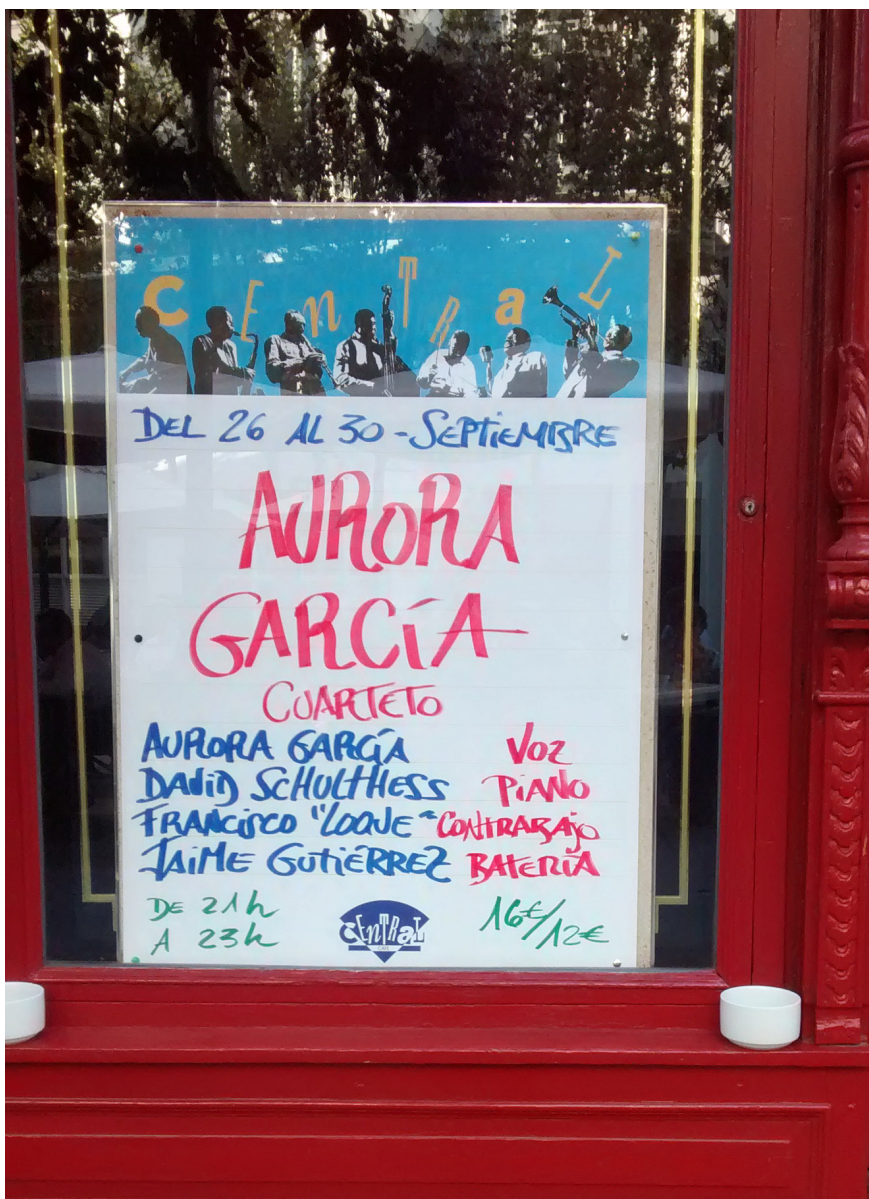 CENTRAL
DEL 26 AL 30 - SEPTIEMBRE
AURORA
GARCÍA
CUARTETO
AURORA GARCÍA VOZ
DAVID SCHULTHESS PIANO
FRANCISCO "LOQUE" CONTRABAJO
JAIME GUTIÉRREZ BATERÍA
DE 21h
A 23h
CENTRAL
CAFE
16€/12€